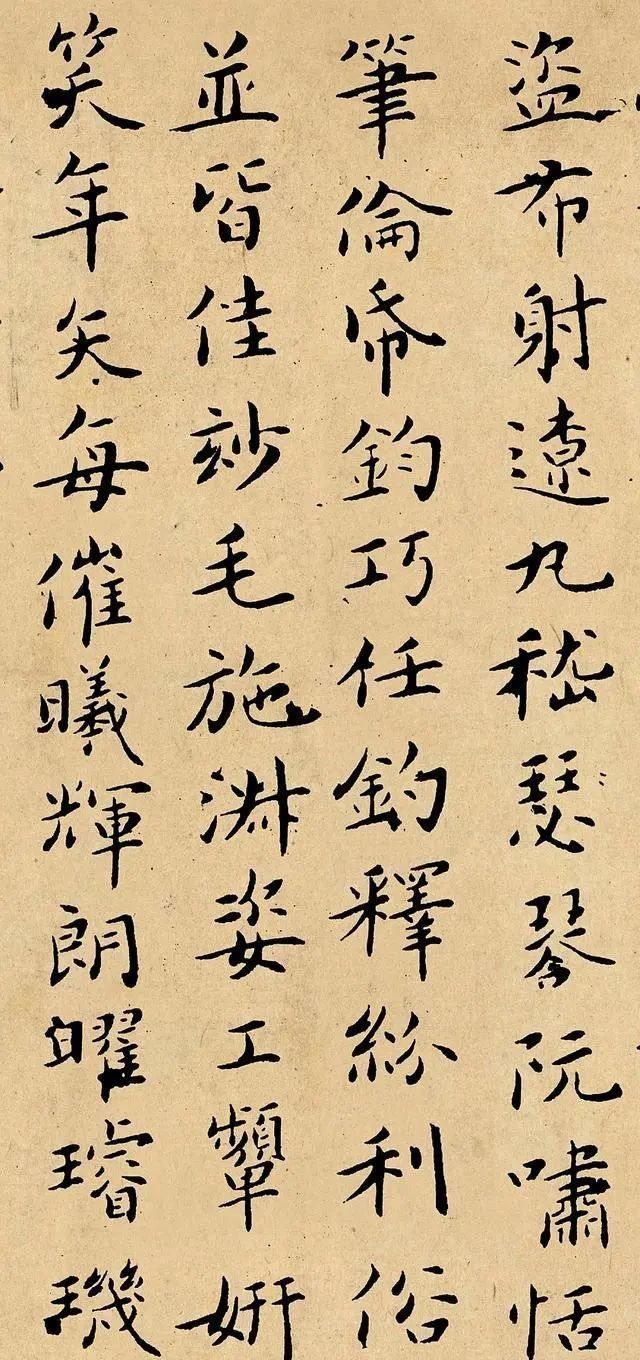 盜布射遼丸嵇瑟琴阮嘯恬
筆倫帋鈞巧任釣釋紛利俗
並皆佳玅毛施淑姿工顰妍
笑年矢每催曦輝朗曜璿璣